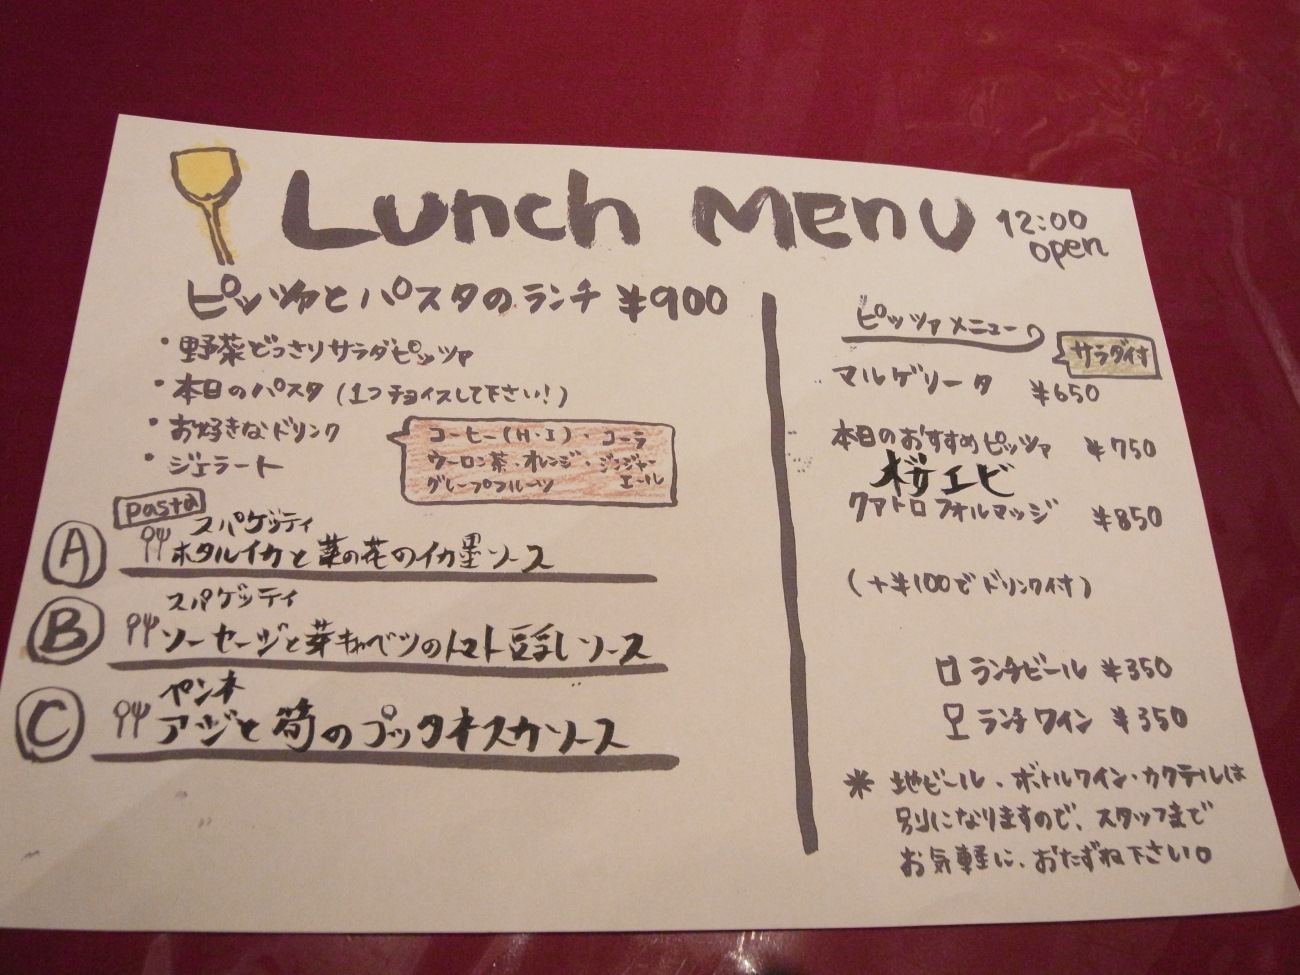 Lunch MENU
12:00 open
ピッツァとパスタのランチ ¥900
・野菜どっさりサラダピッツァ
・本日のパスタ (1つチョイスして下さい!)
・お好きなドリンク
・ジェラート
コーヒー(H・I)・コーラ
ウーロン茶・オレンジ・ジンジャーエール
グレープフルーツ
pasta
A スパゲッティ
ホタルイカと菜の花のイカ墨ソース
B スパゲッティ
ソーセージと芽キャベツのトマト豆乳ソース
C ペンネ
アジと筍のプッタネスカソース
ピッツァメニュー
サラダ付
マルゲリータ ¥650
本日のおすすめピッツァ ¥750
桜エビ
クアトロフォルマッジ ¥850
(+¥100でドリンク付)
ランチビール ¥350
ランチワイン ¥350
* 地ビール・ボトルワイン・カクテルは
別になりますので、スタッフまで
お気軽に、おたずね下さい。